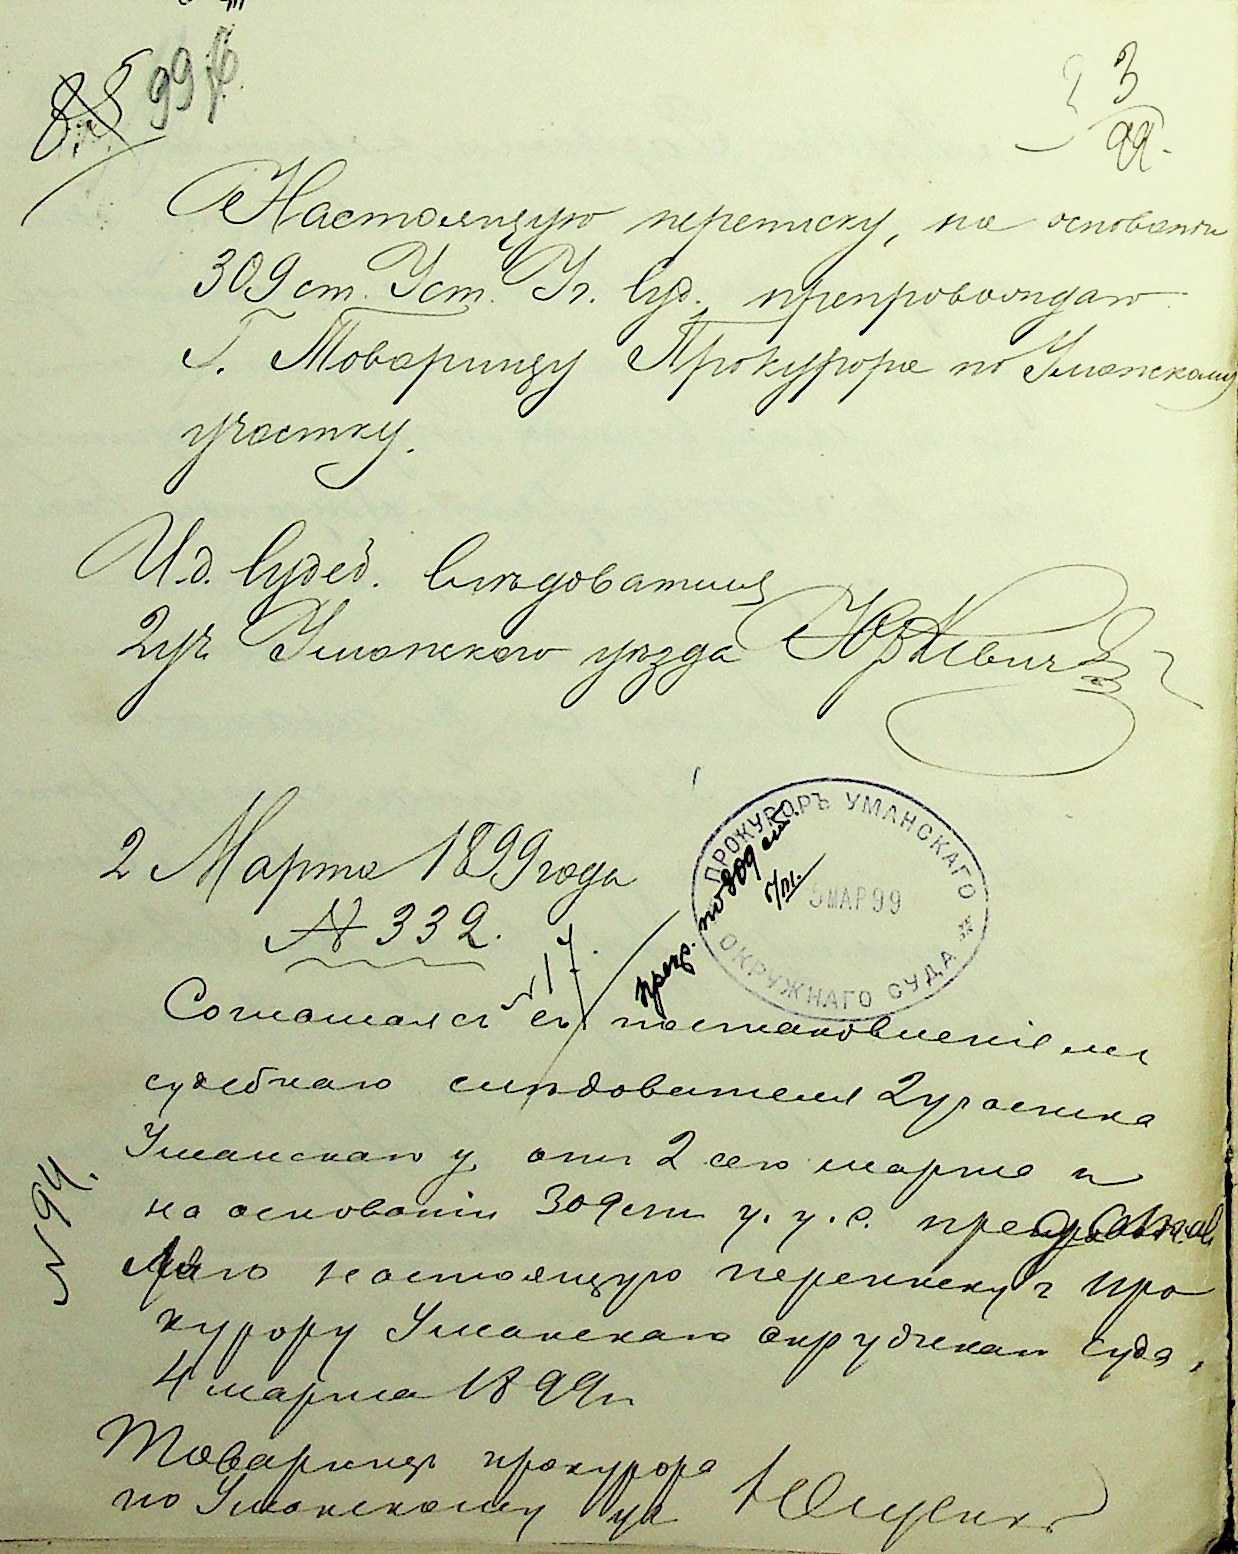 85 99
3
99.
Настоящую переписку, на основаніи
309 ст. Уст. Уг. Суд. препровождаю
Г. Товарищу Прокурора по Уманскому
участку.
И.д. Судеб. Слѣдователя
2 уч. Уманского уѣзда Юркевичъ
2 Марта 1899 года
№ 332.
ПРОКУРОРЪ УМАНСКАГО
ОКРУЖНАГО СУДА
5 МАР 99
по 309 ст.
5/III.
№ 17.
Соглашаясь съ постановленіемъ
судебнаго слѣдователя 2 участка
Уманскаго у. отъ 2 сего марта и
на основаніи 309 ст. у. у. с. представ
ляю настоящую переписку г. Про
курору Уманскаго окружнаго суда,
4 марта 1899 г.
№ 94.
Товарищъ прокурора
по Уманскому уч.